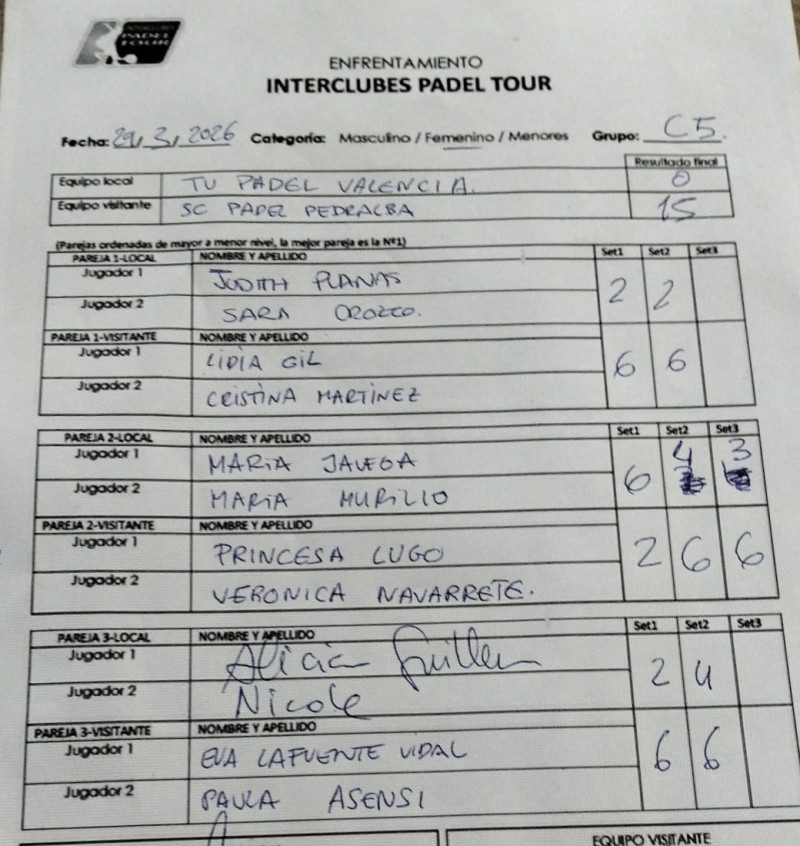 INTERCLUBES
PADEL
TOUR
ENFRENTAMIENTO
INTERCLUBES PADEL TOUR
Fecha: 29/3/2026 Categoría: Masculino / Femenino / Menores Grupo: C5.
Resultado final
Equipo local TU PADEL VALENCIA. 0
Equipo visitante SC PADEL PEDRALBA 15
(Parejas ordenadas de mayor a menor nivel, la mejor pareja es la Nº1)
PAREJA 1-LOCAL NOMBRE Y APELLIDO Set1 Set2 Set3
Jugador 1 JUDITH PLANAS 2 2
Jugador 2 SARA OROZCO.
PAREJA 1-VISITANTE NOMBRE Y APELLIDO
Jugador 1 LIDIA GIL 6 6
Jugador 2 CRISTINA MARTINEZ
PAREJA 2-LOCAL NOMBRE Y APELLIDO Set1 Set2 Set3
Jugador 1 MARIA JAVEGA 6 4 3
Jugador 2 MARIA MURILLO
PAREJA 2-VISITANTE NOMBRE Y APELLIDO
Jugador 1 PRINCESA LUGO 2 6 6
Jugador 2 VERONICA NAVARRETE.
PAREJA 3-LOCAL NOMBRE Y APELLIDO Set1 Set2 Set3
Jugador 1 Alicia Guillen 2 4
Jugador 2 Nicole
PAREJA 3-VISITANTE NOMBRE Y APELLIDO
Jugador 1 EVA LAFUENTE VIDAL 6 6
Jugador 2 PAULA ASENSI
EQUIPO VISITANTE